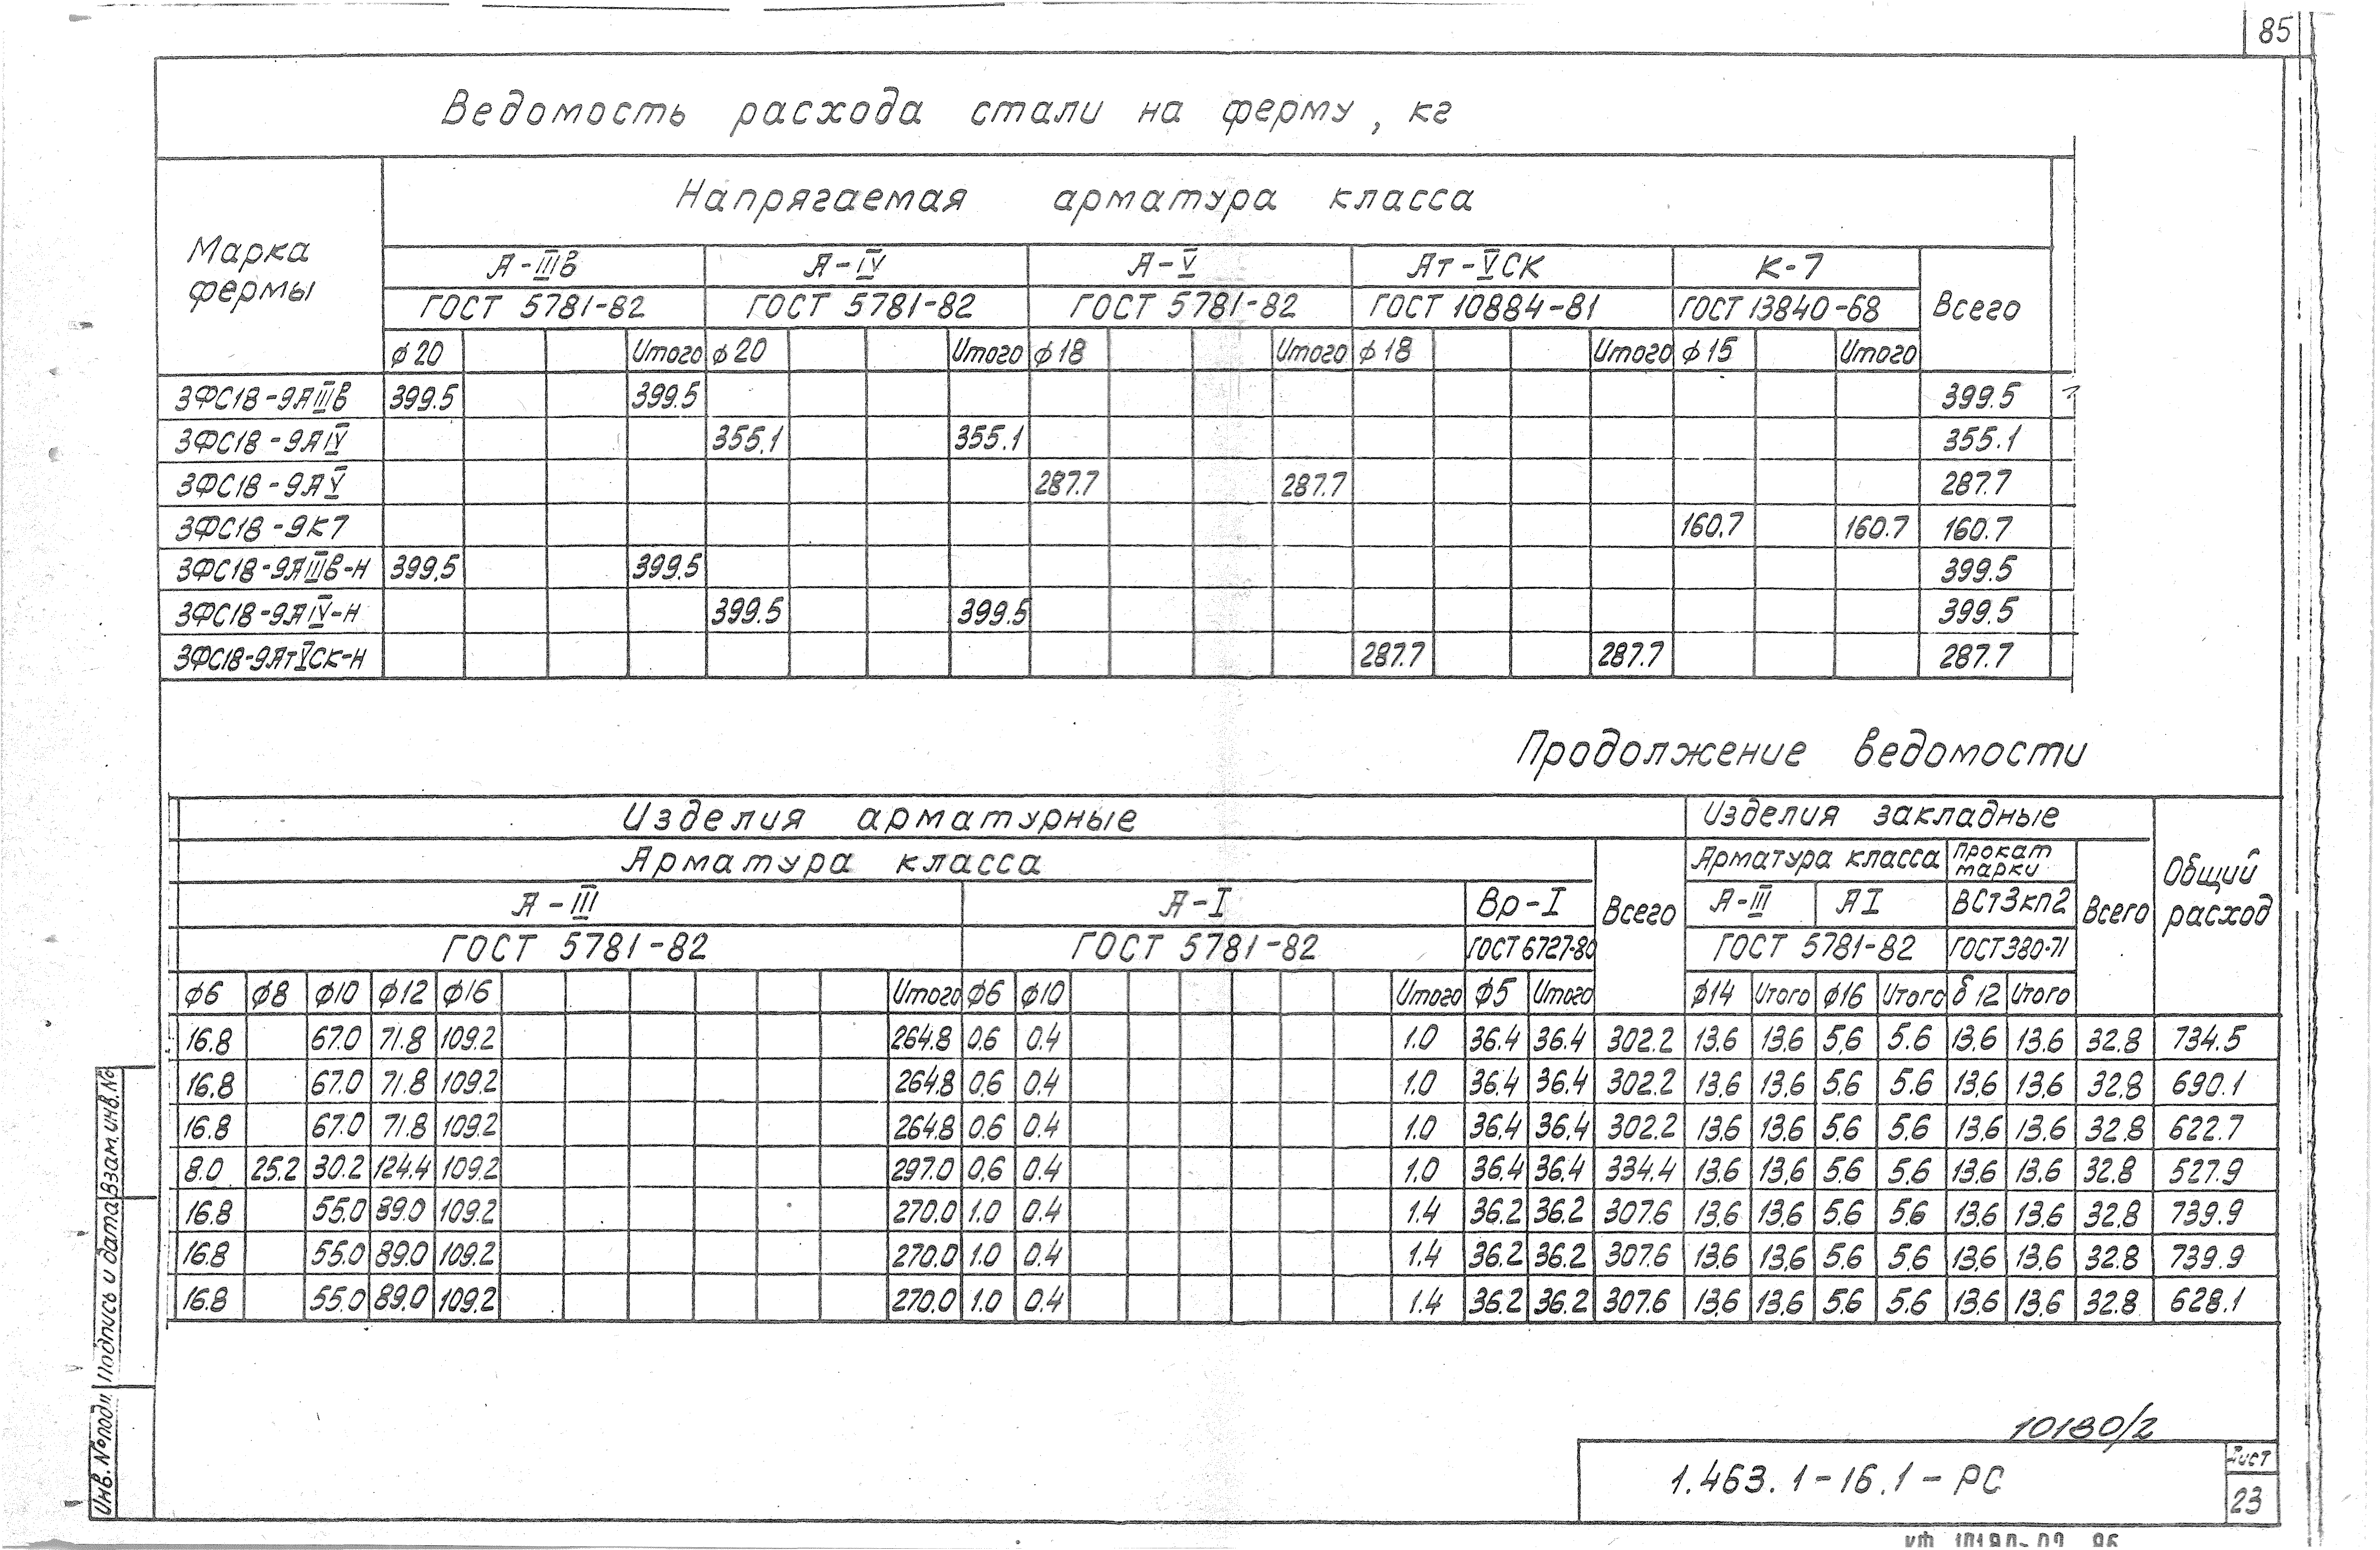 85
Ведомость расхода стали на ферму, кг
Марка фермы
Напрягаемая арматура класса
А-IIIв А-IV А-V Ат-VСК К-7 Всего
ГОСТ 5781-82 ГОСТ 5781-82 ГОСТ 5781-82 ГОСТ 10884-81 ГОСТ 13840-68
ф20 Итого ф20 Итого ф18 Итого ф18 Итого ф15 Итого
3ФС18-9АIIIв 399.5 399.5 399.5
3ФС18-9АIV 355.1 355.1 355.1
3ФС18-9АV 287.7 287.7 287.7
3ФС18-9К7 160.7 160.7 160.7
3ФС18-9АIIIв-Н 399.5 399.5 399.5
3ФС18-9АIV-Н 399.5 399.5 399.5
3ФС18-9АтVСК-Н 287.7 287.7 287.7
Продолжение ведомости
Изделия арматурные Изделия закладные Общий расход
Арматура класса Всего Арматура класса Прокат марки Всего
А-III А-I Вр-I А-III АI ВСт3кп2
ГОСТ 5781-82 ГОСТ 5781-82 ГОСТ 6727-80 ГОСТ 5781-82 ГОСТ 380-71
ф6 ф8 ф10 ф12 ф16 Итого ф6 ф10 Итого ф5 Итого ф14 Итого ф16 Итого δ12 Итого
16.8 67.0 71.8 109.2 264.8 0.6 0.4 1.0 36.4 36.4 302.2 13.6 13.6 5.6 5.6 13.6 13.6 32.8 734.5
16.8 67.0 71.8 109.2 264.8 0.6 0.4 1.0 36.4 36.4 302.2 13.6 13.6 5.6 5.6 13.6 13.6 32.8 690.1
16.8 67.0 71.8 109.2 264.8 0.6 0.4 1.0 36.4 36.4 302.2 13.6 13.6 5.6 5.6 13.6 13.6 32.8 622.7
8.0 25.2 30.2 124.4 109.2 297.0 0.6 0.4 1.0 36.4 36.4 334.4 13.6 13.6 5.6 5.6 13.6 13.6 32.8 527.9
16.8 55.0 89.0 109.2 270.0 1.0 0.4 1.4 36.2 36.2 307.6 13.6 13.6 5.6 5.6 13.6 13.6 32.8 739.9
16.8 55.0 89.0 109.2 270.0 1.0 0.4 1.4 36.2 36.2 307.6 13.6 13.6 5.6 5.6 13.6 13.6 32.8 739.9
16.8 55.0 89.0 109.2 270.0 1.0 0.4 1.4 36.2 36.2 307.6 13.6 13.6 5.6 5.6 13.6 13.6 32.8 628.1
Инв. № подл. Подпись и дата Взам. инв. №
10180/2
1.463.1-16.1-РС
Лист
23